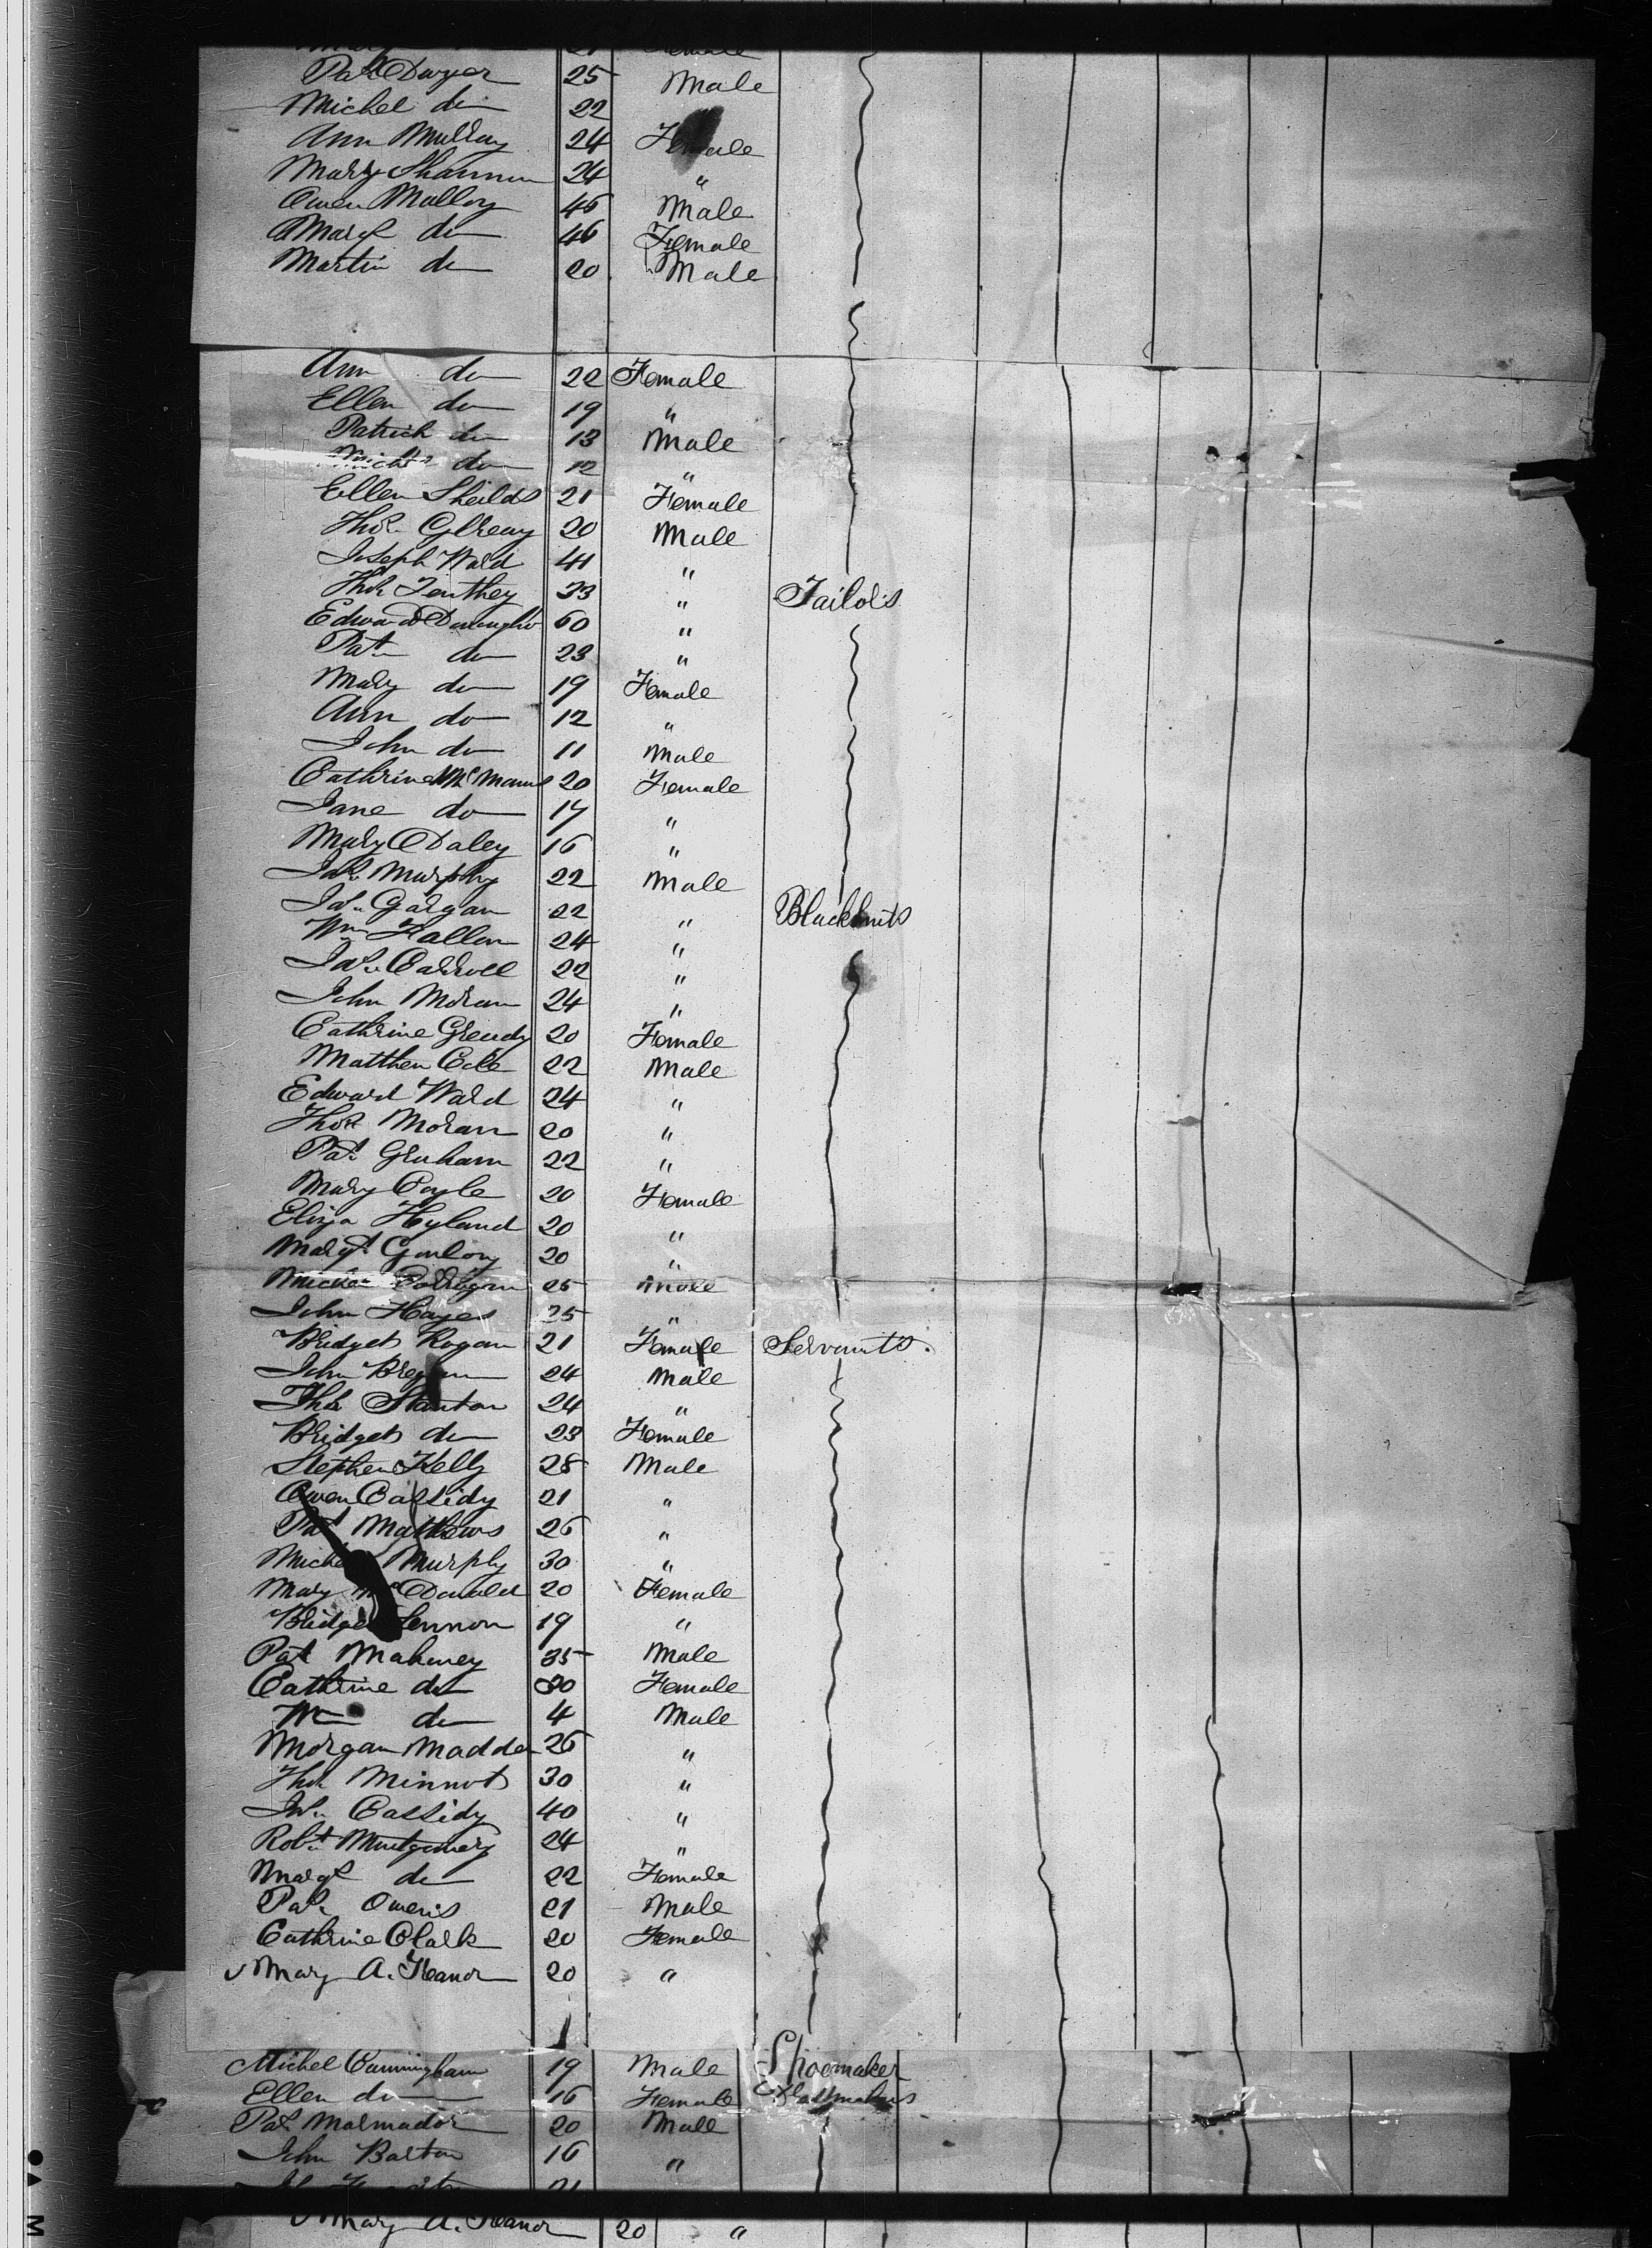 Mary 21 Female
Pat Dwyer 25 Male
Michel do 22
Ann Mullay 24 Female
Mary Shannon 24 "
Owen Malloy 46 Male
Margt do 46 Female
Martin do 20 Male
Ann do 22 Female
Ellen do 19 "
Patrick do 13 Male
Michl do 12 "
Ellen Sheilds 21 Female
Thos Gilreay 20 Male
Joseph Ward 41 "
Thos 33 " Tailors
Edward Donougho 60 "
Pat do 23 "
Mary do 19 Female
Ann do 12 "
John do 11 Male
Cathrine McManus 20 Female
Jane do 17 "
Mary Daley 16 "
Jas Murphy 22 Male
Jas Gargan 22 " Blacksmits
Wm Fallon 24 "
Jas Carroll 22 "
John Moran 24 "
Cathrine Gready 20 Female
Matthew Cole 22 Male
Edward Ward 24 "
Thos Moran 20 "
Pat Graham 22 "
Mary Coyle 20 Female
Eliza Hyland 20 "
Margt Conlony 20 "
Michel Corrigan 25 Male
John Hayes 25 "
Bridget Rogan 21 Female Servants.
John 24 Male
Thos Stanton 24 "
Bridget do 23 Female
Stephen Kelly 28 Male
Owen Cassidy 21 "
Pat Mathews 26 "
Michel Murphy 30 "
Mary McDonald 20 Female
Bridget Lennon 19 "
Pat Mahoney 35 Male
Cathrine do 30 Female
Wm do 4 Male
Morgan Madden 26 "
Thos Minnot 30 "
Jas Cassidy 40 "
Robt Montgomery 24 "
Margt do 22 Female
Pat Owens 21 Male
Cathrine Clark 20 Female
Mary A. Keanor 20 "
Michel Cunningham 19 Male Shoemaker
Ellen do 16 Female Dressmakers
Pat Marmador 20 Male
John Barton 16 "
21
Mary A. Keanor 20 "